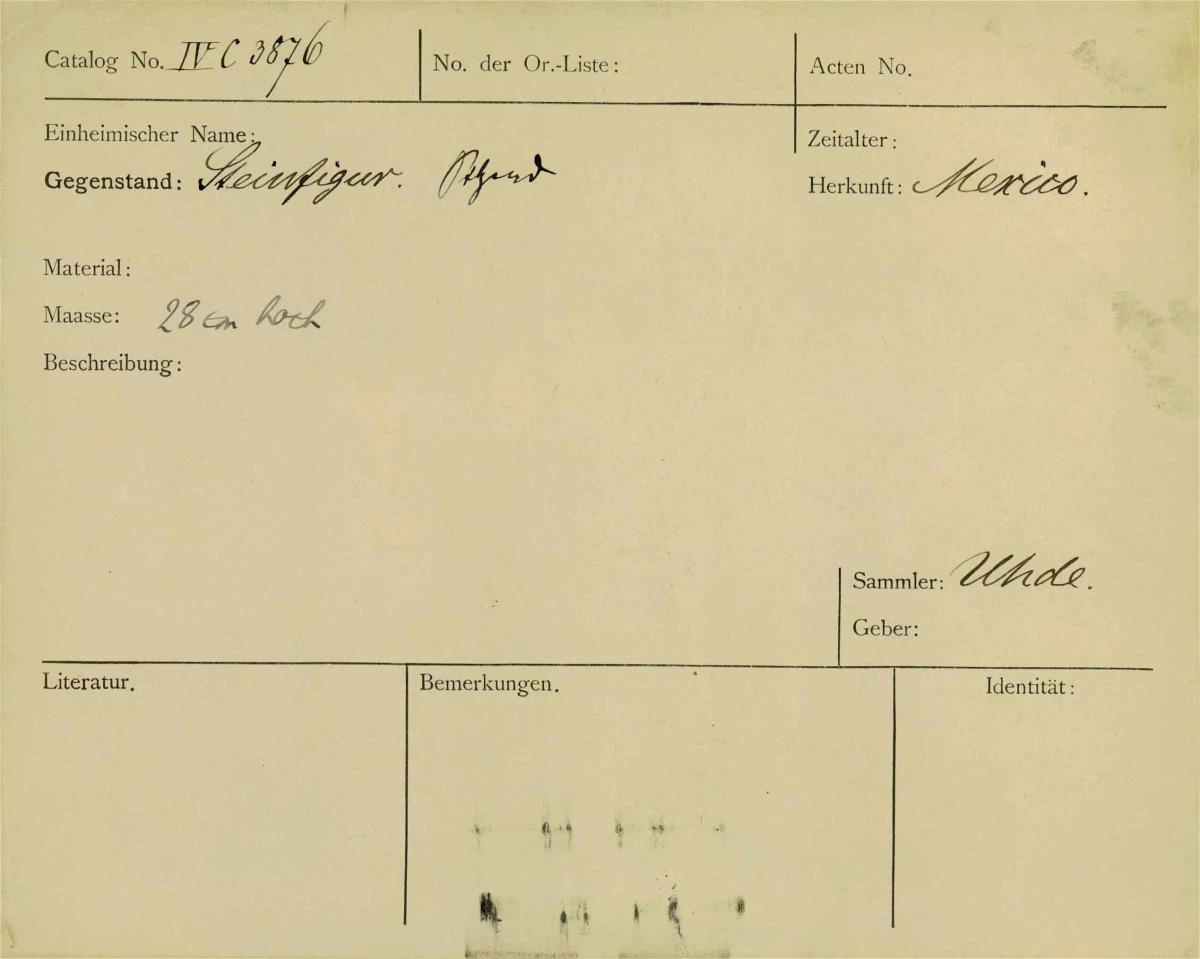 Catalog No. IV C 3876
No. der Or.-Liste:
Acten No.
Einheimischer Name:
Zeitalter:
Gegenstand: Steinfigur.
Herkunft: Mexico.
Material:
Maasse: 28 cm hoch
Beschreibung:
Sammler: Uhde.
Geber:
Literatur.
Bemerkungen.
Identität: